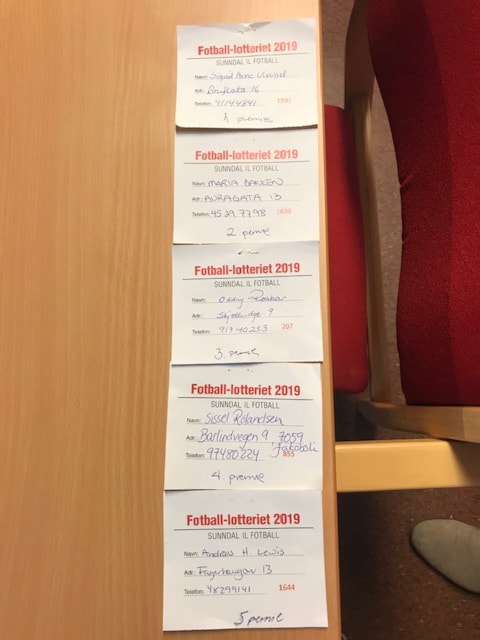 Fotball-lotteriet 2019
SUNNDAL IL FOTBALL
Navn: Sigrid Anne
Adr: 16
Telefon: 41144841 1991
1 premie
Fotball-lotteriet 2019
SUNNDAL IL FOTBALL
Navn: MARIA BAKKEN
Adr: AURAGATA 13
Telefon: 45 29 7798
2 premie
Fotball-lotteriet 2019
SUNNDAL IL FOTBALL
Navn: Oddny
Adr: 9
Telefon: 91740253 207
3. premie
Fotball-lotteriet 2019
SUNNDAL IL FOTBALL
Navn: Sissel Rolandsen
Adr: Barlindvegen 9, 7059
Jakobsli
Telefon: 97480224 855
4 premie
Fotball-lotteriet 2019
SUNNDAL IL FOTBALL
Navn: Andreas H Lewis
Adr: 13
Telefon: 48299141 1644
5 premie